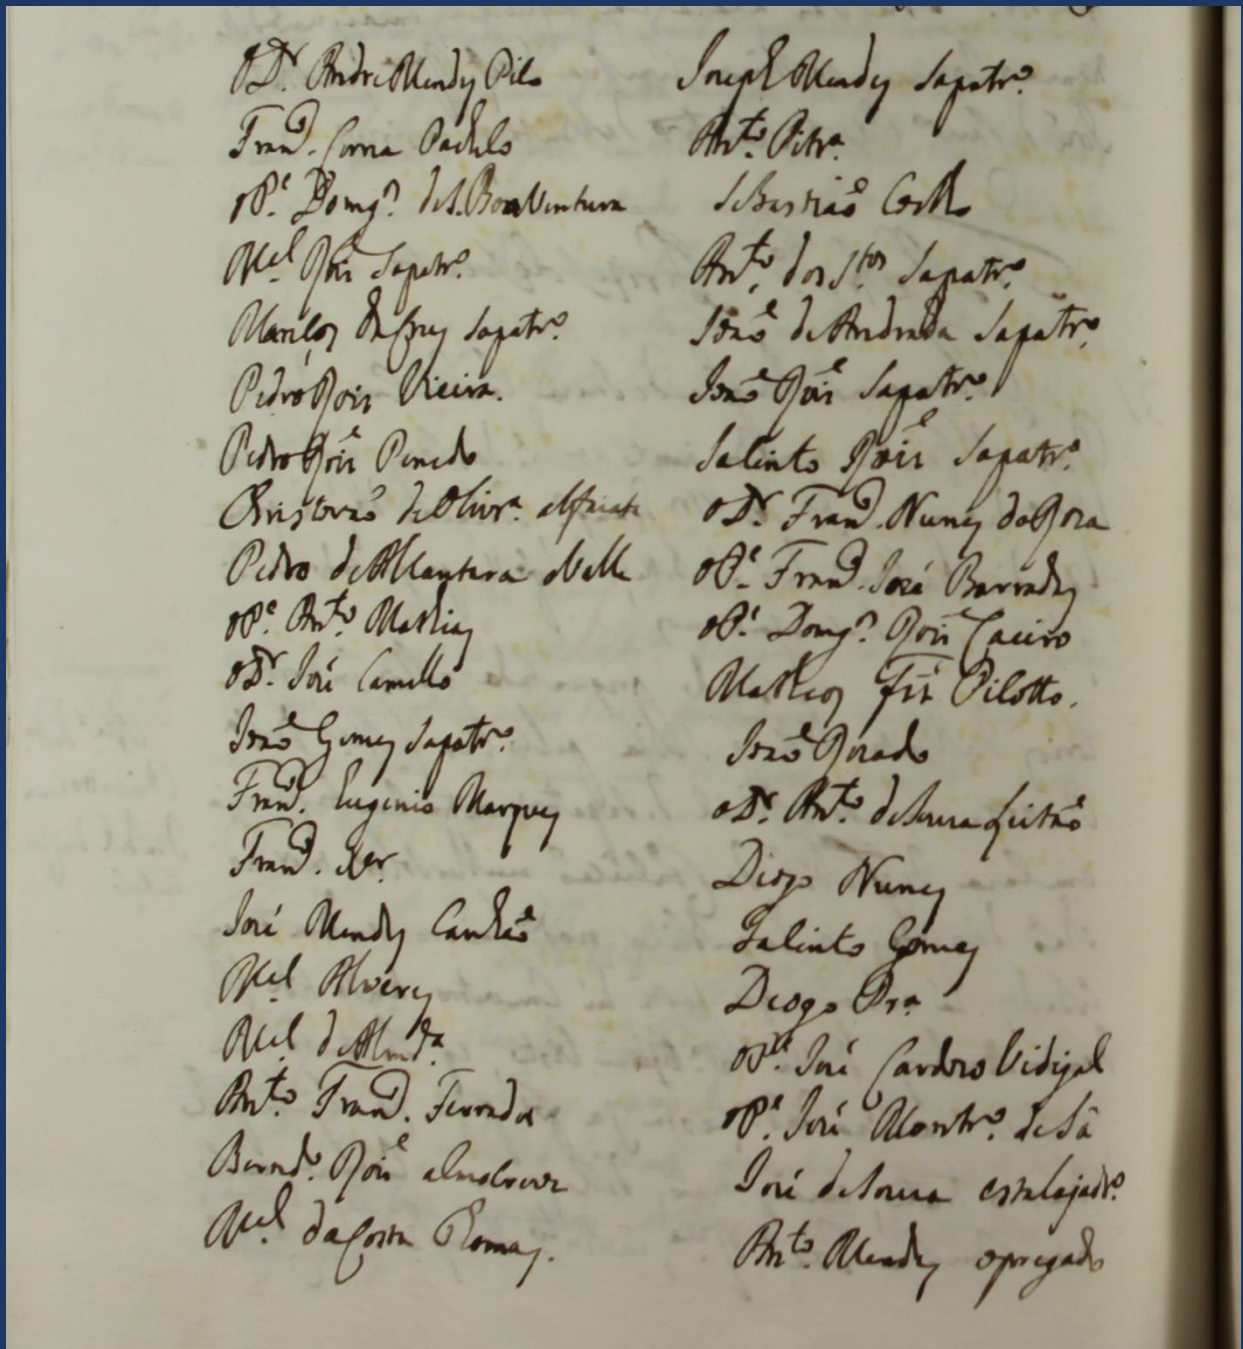 O Dr. Andre Mendes Pilo
Franco. Correa Pachelo
o Pe. Domgos. de S. BoaVentura
Mel. Roiz Sapatro.
Marcos da Cruz Sapatro.
Pedro Roiz Vieira.
Pedro Roiz Penedo
Christovaõ de Olivra. alfaiate
Pedro de Alcantara
o Pe. Anto. Mathias
o Dr. José Camello
Joaõ Gomes Sapatro.
Franco. Eugenio Marques
Franco. Xer.
José Mendes
Mel. Alveres
Mel. de Almda.
Anto. Franco.
Berndo. Roiz almocreve
Mel. da Costa Romas.
Joseph Mendes Sapatro.
Anto. Pitra.
Sebastiaõ Coelho
Anto. dos Stos. Sapatro.
Joaõ de Andrada Sapatro.
Joaõ Roiz Sapatro.
Jalinto Roiz Sapatro.
o Dr. Franco. Nunes da Roza
o Pe. Franco. José Barradas
o Pe. Domgos. Roiz Caeiro
Matheos Frz Pilotto.
Joaõ Rozado
o Dr. Anto. de Souza Leitaõ
Diogo Nunes
Jalinto Gomes
Diogo Pra.
o Pe. José Cardozo Vidigal
o Pe. José Montro. de Sá
José de Souza estalajadro.
Anto. Mendes opregado